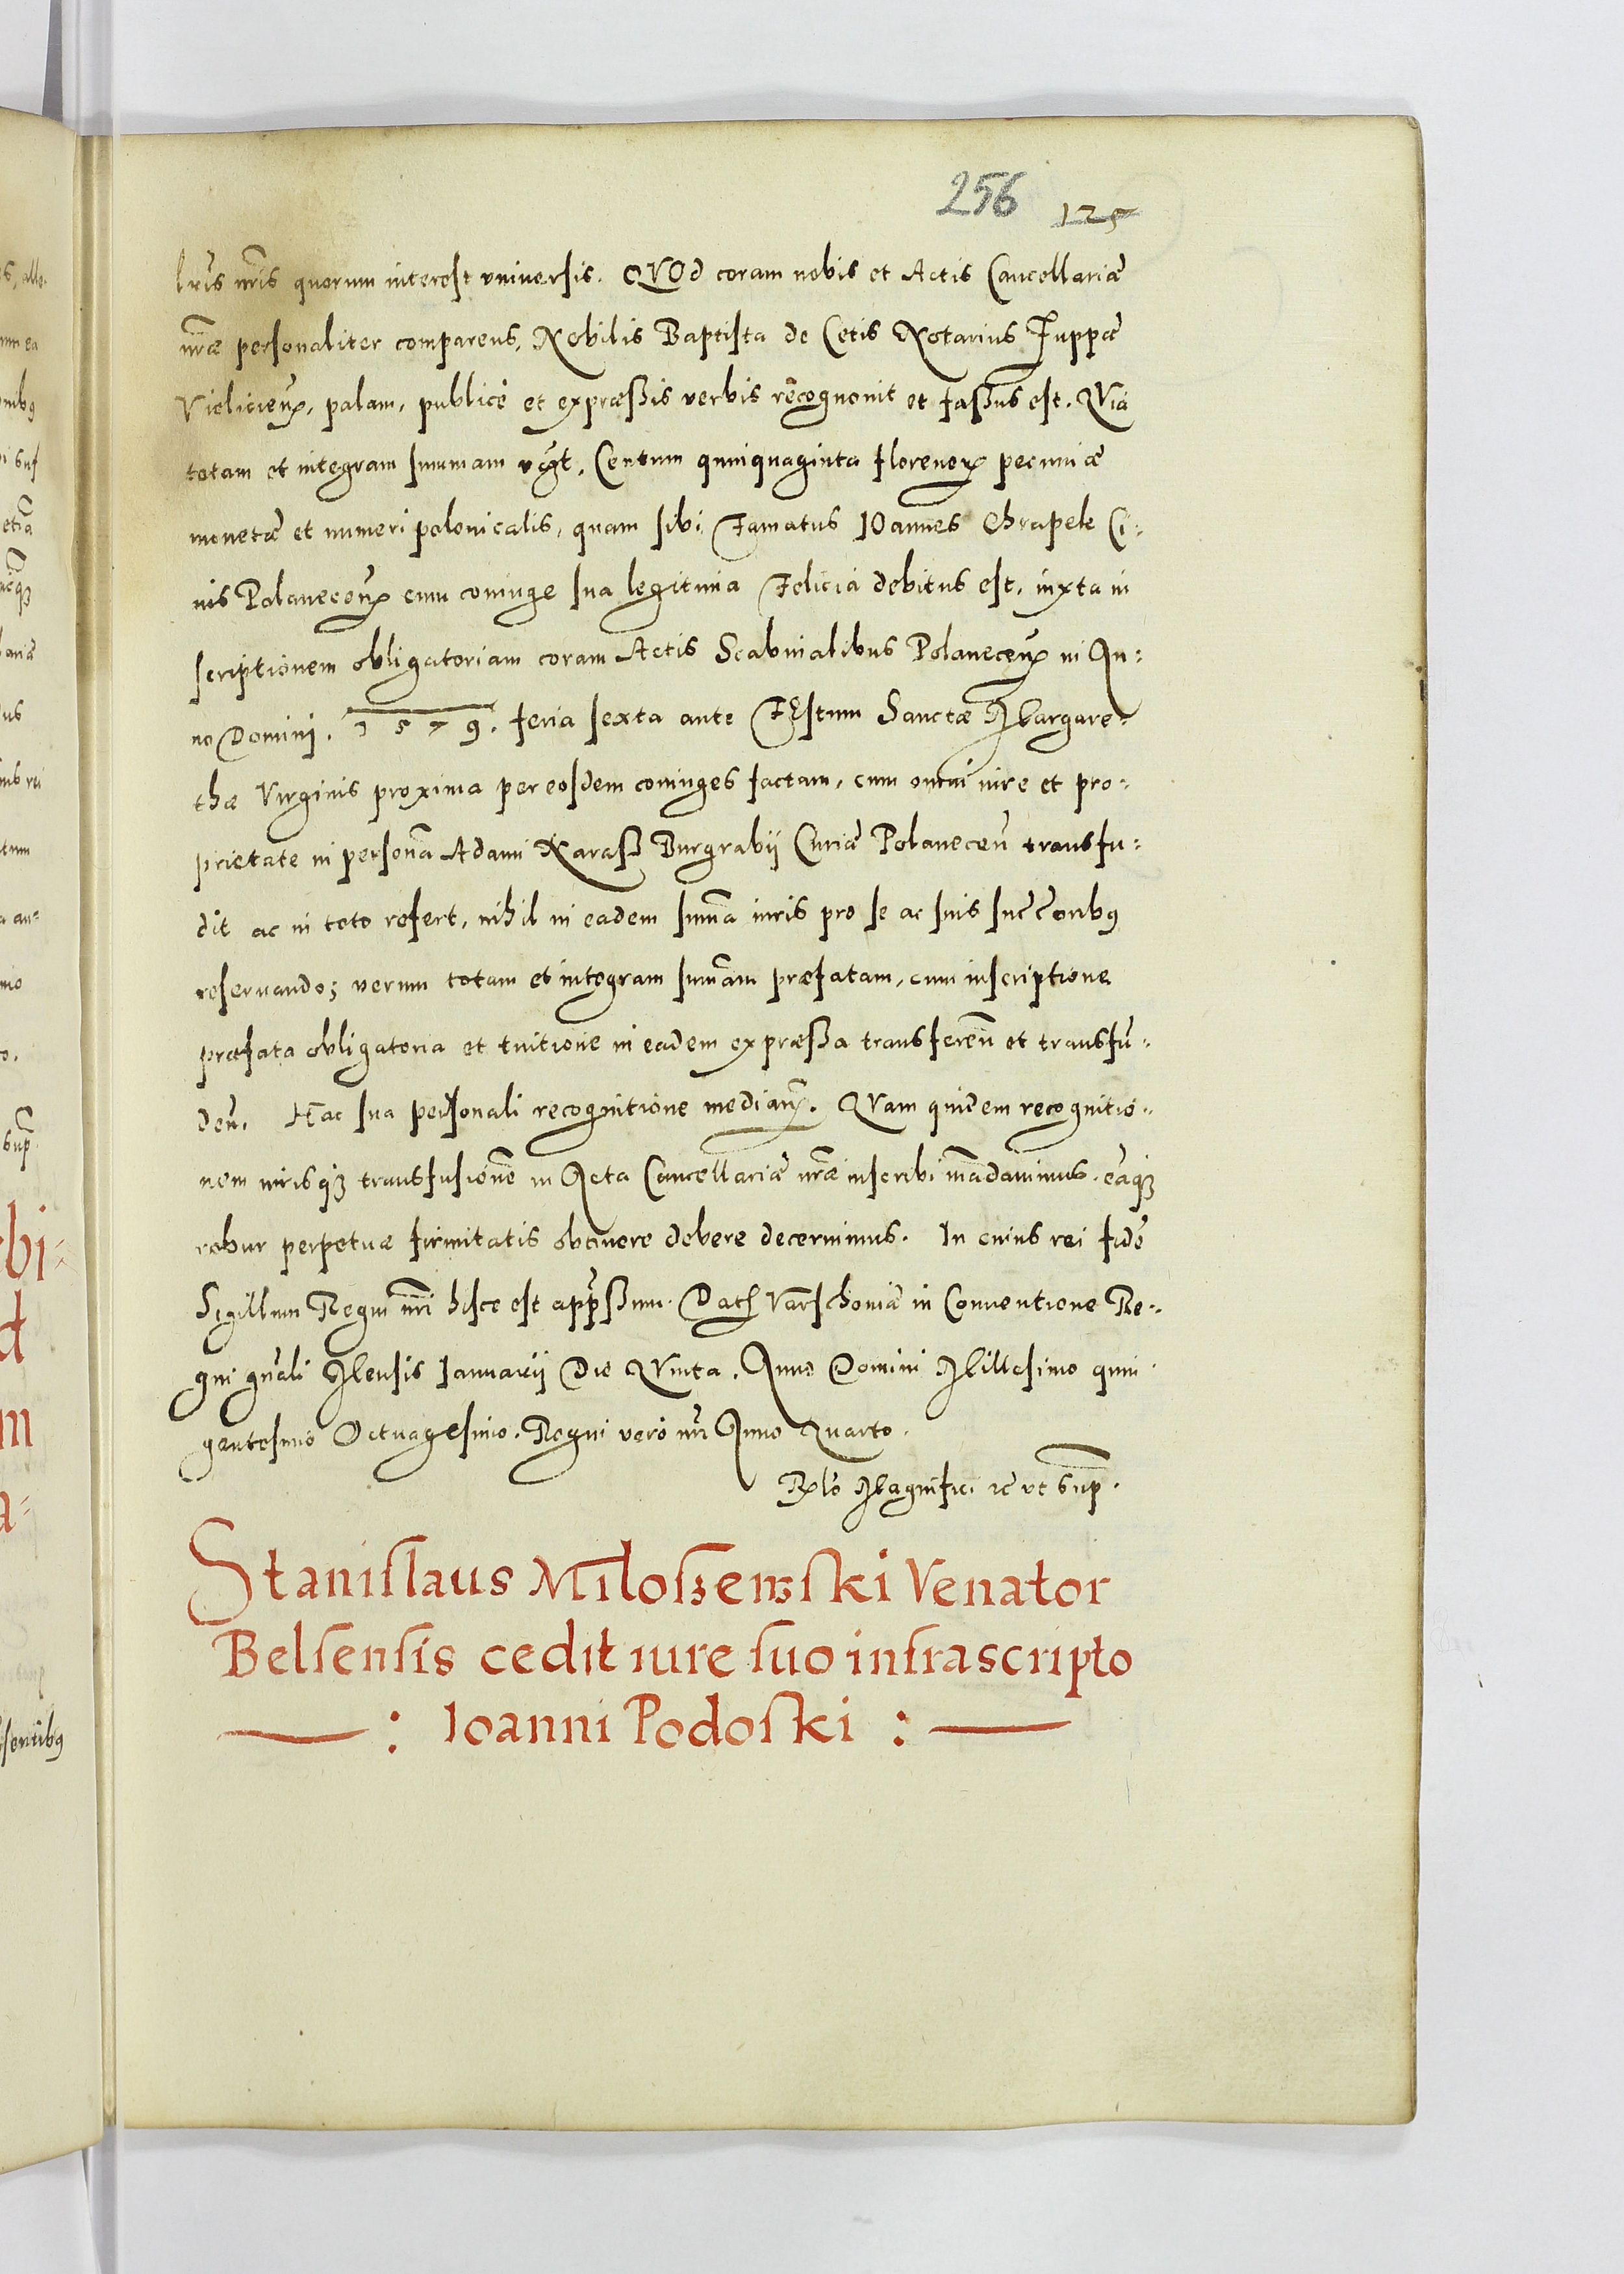 256 125
lrīs nrīs quorum interest vniversis. QVOd coram nobis et Actis Cancellariæ
nræ personaliter comparens, Nobilis Baptista de Cetis Notarius Zuppæ
Vielicien̄, palam, publicè et expræssis verbis recognouit et fassus est. QVia
totam et integram summam vigt. Centum quinquaginta florenor pecuniæ
monetæ et numeri polonicalis, quam sibi Famatus IOannes Chrapek Ci:
uis Polanecen̄ cum coniuge sua legitima Felicia debitus est, iuxta in
scriptionem obligatoriam coram Actis Scabinalibus Polanecen̄ in An:
no Domini. 1579. feria sexta ante FEstum Sanctæ Margare:
thæ Virginis proxima per eosdem coniuges factam, cum omni iure et pro:
prietate in personā Adami Karasz Burgrabij Curiæ Polanecen̄ transfu:
dit ac in toto refert, nihil in eadem summa iuris pro se ac suis succ̄oribꝰ
reseruando; verum totam et integram summam præfatam, cum inscriptione
præfata obligatoria et tuitione in eadem expræssa transferen̄ et transfu:
den̄. Hac sua personali recognitione median̄. QVam quidem recognitio:
nem iurisqꝫ transfusionē in Acta Cancellariæ nræ inscribi mādauimus. eāqꝫ
robur perpetuæ firmitatis obtinere debere decernimus. In cuius rei fidē
Sigillum Regni nrī hisce est appræssum. Dat Varschouiæ in Conuentione Re:
gni gnāli Mensis Ianuarij Die QVinta. Anno Domini Millesimo quin
gentesimo Octuagesimo. Regni verò nrī Anno Quarto.
Rlō Magnifici ꝛc̄ vt sup̄.
Stanislaus Miloszewski Venator
Belsensis cedit iure suo infrascripto
: Ioanni Podoski :